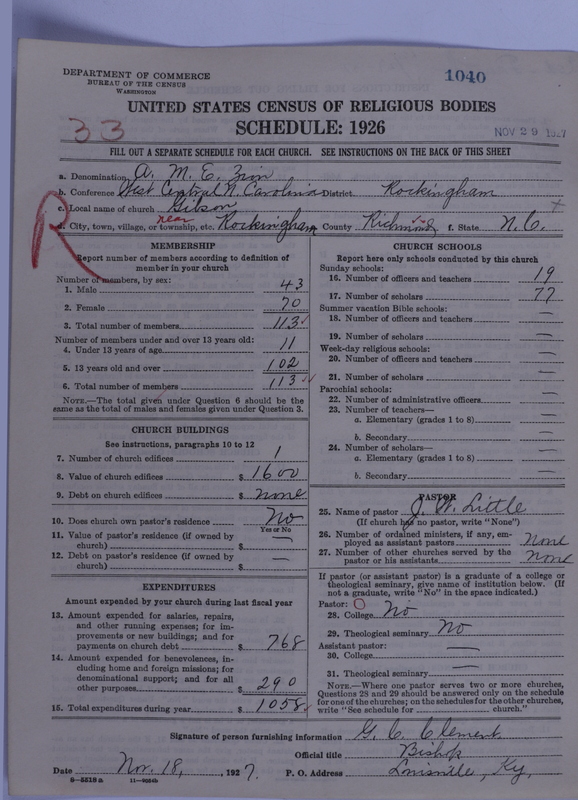 DEPARTMENT OF COMMERCE
BUREAU OF THE CENSUS
WASHINGTON
1040
UNITED STATES CENSUS OF RELIGIOUS BODIES
33
SCHEDULE: 1926
NOV 29 1927
FILL OUT A SEPARATE SCHEDULE FOR EACH CHURCH. SEE INSTRUCTIONS ON THE BACK OF THIS SHEET
a. Denomination A. M. E. Zion
b. Conference West Central N. Carolina District Rockingham
c. Local name of church Gibson
R
d. City, town, village, or township, etc. near Rockingham County Richmond f. State N. C.
MEMBERSHIP
Report number of members according to definition of
member in your church
Number of members, by sex:
1. Male 43
2. Female 70
3. Total number of members 113
Number of members under and over 13 years old:
4. Under 13 years of age 11
5. 13 years old and over 102
6. Total number of members 113
NOTE.—The total given under Question 6 should be
same as the total of males and females given under Question 3.
CHURCH BUILDINGS
See instructions, paragraphs 10 to 12
7. Number of church edifices 1
8. Value of church edifices $ 1600
9. Debt on church edifices $ none
10. Does church own pastor's residence No
Yes or No
11. Value of pastor's residence (if owned by
church) $ —
12. Debt on pastor's residence (if owned by
church) $ —
EXPENDITURES
Amount expended by your church during last fiscal year
13. Amount expended for salaries, repairs,
and other running expenses; for im-
provements or new buildings; and for
payments on church debt $ 768
14. Amount expended for benevolences, in-
cluding home and foreign missions; for
denominational support; and for all
other purposes $ 290
15. Total expenditures during year $ 1058
CHURCH SCHOOLS
Report here only schools conducted by this church
Sunday schools:
16. Number of officers and teachers 19
17. Number of scholars 77
Summer vacation Bible schools:
18. Number of officers and teachers —
19. Number of scholars —
Week-day religious schools:
20. Number of officers and teachers —
21. Number of scholars —
Parochial schools:
22. Number of administrative officers —
23. Number of teachers—
a. Elementary (grades 1 to 8) —
b. Secondary —
24. Number of scholars—
a. Elementary (grades 1 to 8) —
b. Secondary —
PASTOR
25. Name of pastor J. W. Little
(If church has no pastor, write "None")
26. Number of ordained ministers, if any, em-
ployed as assistant pastors none
27. Number of other churches served by the
pastor or his assistants none
If pastor (or assistant pastor) is a graduate of a college or
theological seminary, give name of institution below. (If
not a graduate, write "No" in the space indicated.)
Pastor:
28. College No
29. Theological seminary No
Assistant pastor:
30. College —
31. Theological seminary —
NOTE.—Where one pastor serves two or more churches,
Questions 28 and 29 should be answered only on the schedule
for one of the churches; on the schedules for the other churches,
write "See schedule for church."
Signature of person furnishing information G. C. Clement
Official title Bishop
Date Nov. 18, 1927. P. O. Address Louisville, Ky.
8-5518 a